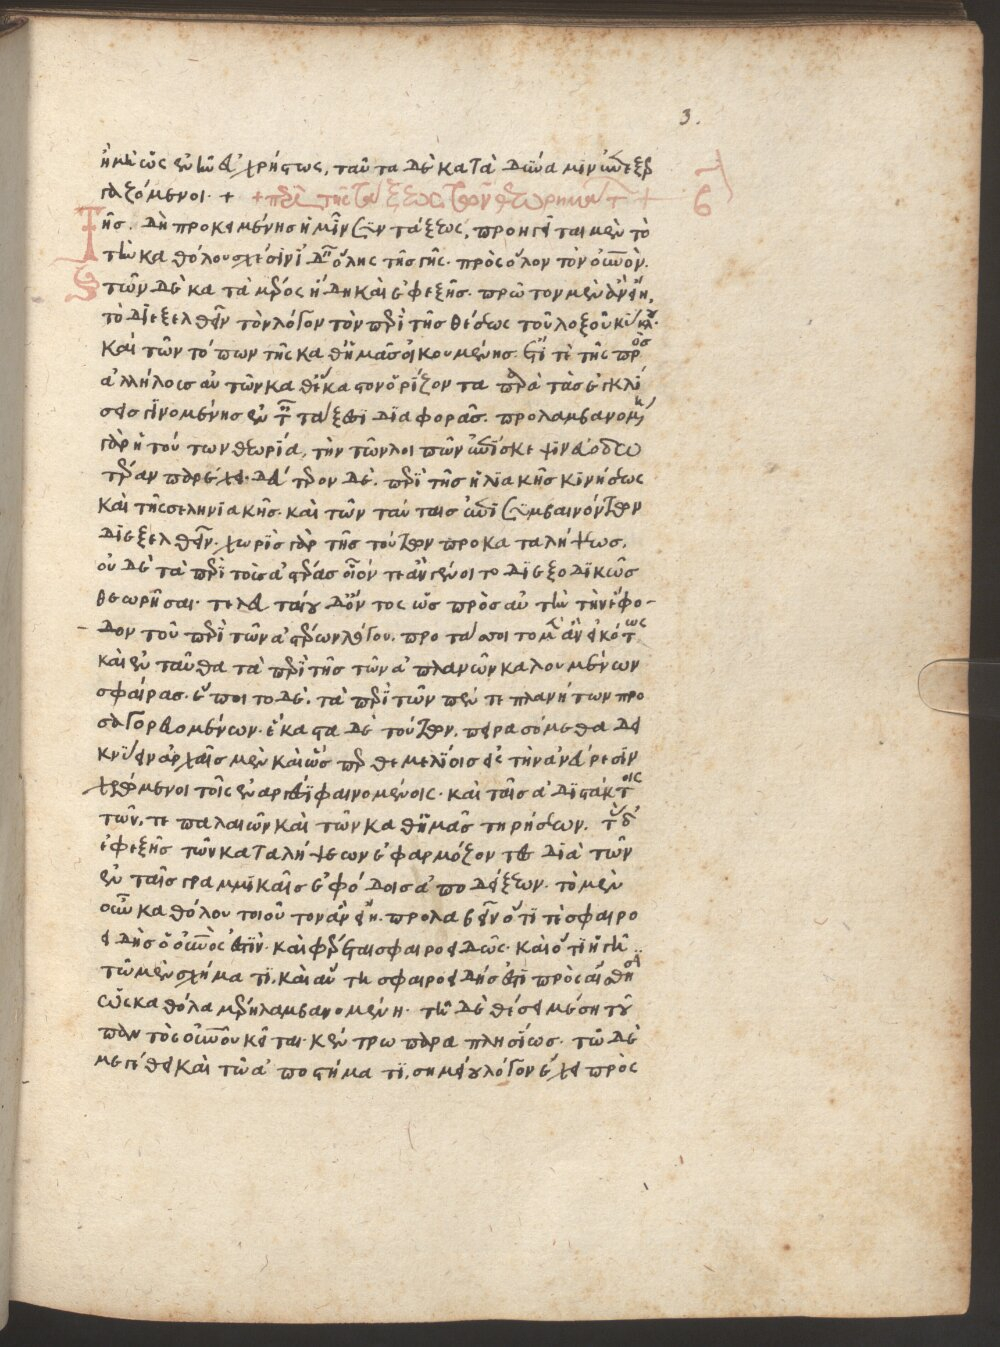 3.
ἢ μὴ ὡς ἐνῆν εὐχρήστως, ταῦτα δὲ κατὰ δύναμιν ἐπεξερ
γαζόμενοι + + περὶ τῆς τάξεως τῶν θεωρημάτων +
β
Τῆς δὴ προκειμένης ἡμῖν συντάξεως, προηγεῖται μὲν τὸ
τὴν καθόλου σχέσιν ἰδεῖν ὅλης τῆς γῆς πρὸς ὅλον τὸν οὐρανόν.
τῶν δὲ κατὰ μέρος ἤδη καὶ ἐφεξῆς πρῶτον μὲν ἂν εἴη,
τὸ διεξελθεῖν τὸν λόγον τὸν περὶ τῆς θέσεως τοῦ λοξοῦ κύκλου
καὶ τῶν τόπων τῆς καθ' ἡμᾶς οἰκουμένης ἔτι τὲ τῆς πρὸς
ἀλλήλους αὐτῶν καθ' ἕκαστον ὁρίζοντα παρὰ τὰς ἐγκλί
σεις γινομένης ἐν ταῖς τάξεσι διαφορᾶς. προλαμβανομένη
γὰρ ἡ τούτων θεωρία, τὴν τῶν λοιπῶν ἐπίσκεψιν εὐοδω
τέραν παρέχει. δεύτερον δὲ περὶ τῆς ἡλιακῆς κινήσεως
καὶ τῆς σεληνιακῆς καὶ τῶν ταύταις ἐπισυμβαινόντων
διεξελθεῖν. χωρὶς γὰρ τῆς τούτων προκαταλήψεως,
οὐδὲ τὰ περὶ τοὺς ἀστέρας οἷόν τε ἂν γένοιτο διεξοδικῶς
θεωρῆσαι. τελευταίου δ' ὄντος ὡς πρὸς αὐτὴν τὴν ἔφο-
δον τοῦ περὶ τῶν ἀστέρων λόγου. προτάσσοιτο μὲν ἂν εἰκότως
καὶ ἐνταῦθα τὰ περὶ τῆς τῶν ἀπλανῶν καλουμένων
σφαίρας. ἕποιτο δὲ, τὰ περὶ τῶν πέντε πλανήτων προ
σαγορευομένων. ἕκαστα δὲ τούτων πειρασόμεθα δει
κνύειν ἀρχαῖς μὲν καὶ ὥσπερ θεμελίοις εἰς τὴν ἀνεύρεσιν
χρώμενοι τοῖς ἐναργέσι φαινομένοις καὶ ταῖς ἀδιστάκτοις
τῶν τε παλαιῶν καὶ τῶν καθ' ἡμᾶς τηρήσεων. τὰς δ'
ἐφεξῆς τῶν καταλήψεων ἐφαρμόζοντες διὰ τῶν
ἐν ταῖς γραμμικαῖς ἐφόδοις ἀποδείξεων. τὸ μὲν
οὖν καθόλου τοιοῦτον ἂν εἴη προλαβεῖν ὅτι τὲ σφαιρο
ειδὴς ὁ οὐρανός ἐστιν καὶ φέρεται σφαιροειδῶς καὶ ὅτι ἡ γῆ
τῷ μὲν σχήματι, καὶ αὐτὴ σφαιροειδής ἐστι πρὸς αἴσθησιν
ὡς καθ' ὅλα μέρη λαμβανομένη τῇ δὲ θέσει μέση τοῦ
παντὸς οὐρανοῦ κεῖται κέντρῳ παραπλησίως τῷ δὲ
μεγέθει καὶ τῷ ἀποστήματι, σημείου λόγον ἔχει πρὸς